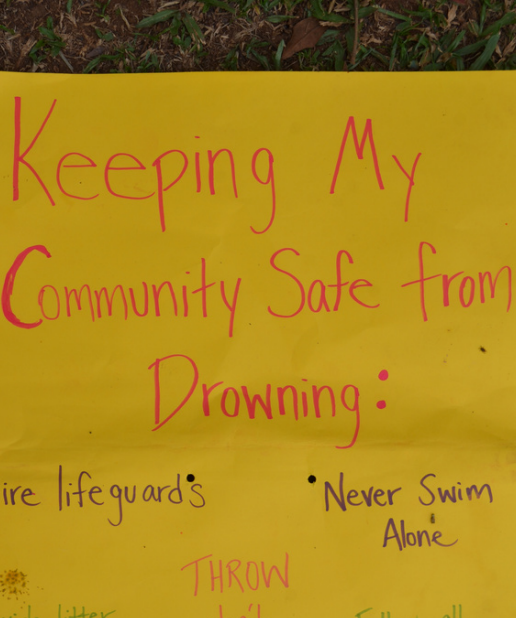 Keeping My
Community Safe from
Drowning:
ire lifeguards • Never Swim
Alone
THROW